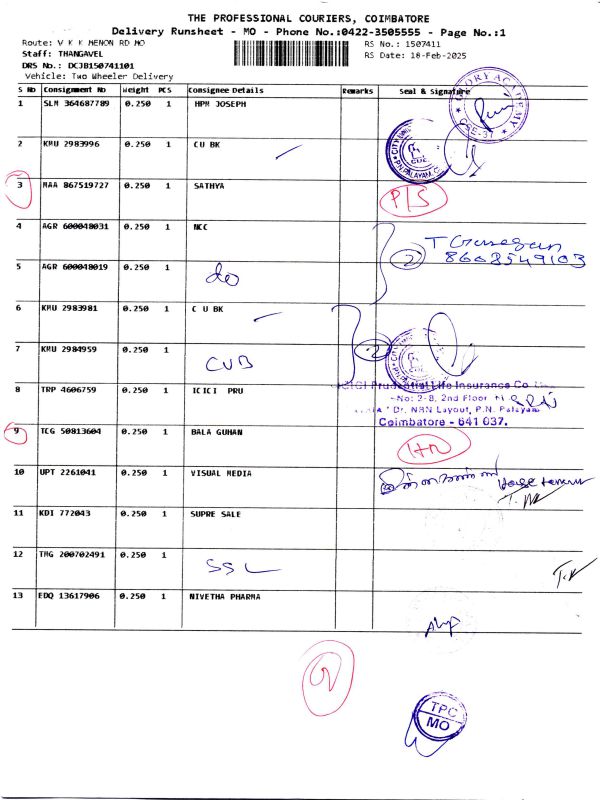 THE PROFESSIONAL COURIERS, COIMBATORE
Delivery Runsheet - MO - Phone No.:0422-3505555 - Page No.:1
Route: V K K MENON RD MO RS No.: 1507411
Staff: THANGAVEL RS Date: 18-Feb-2025
DRS No.: DCJB150741101
Vehicle: Two Wheeler Delivery
S No Consignment No Weight PCS Consignee Details Remarks Seal & Signature
1 SLM 364687789 0.250 1 HPM JOSEPH
2 KMU 2983996 0.250 1 CU BK
3 MAA 867519727 0.250 1 SATHYA P/S
4 AGR 600048031 0.250 1 NCC
2 8668549103
5 AGR 600048019 0.250 1 do
6 KMU 2983981 0.250 1 C U BK
7 KMU 2984959 0.250 1 CUB 2
8 TRP 4606759 0.250 1 ICICI PRU
ICICI Prudential Life Insurance Co
No: 2-8, 2nd Floor
Dr. NRN Layout, P.N. Palayam
Coimbatore - 641 037.
9 TCG 50813604 0.250 1 BALA GUHAN
10 UPT 2261041 0.250 1 VISUAL MEDIA
11 KDI 772043 0.250 1 SUPRE SALE
12 TMG 200702491 0.250 1 SSL
13 EDQ 13617906 0.250 1 NIVETHA PHARMA
TPC
MO